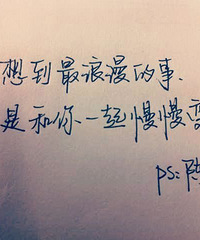 想到最浪漫的事、
是和你一起慢慢变
ps: